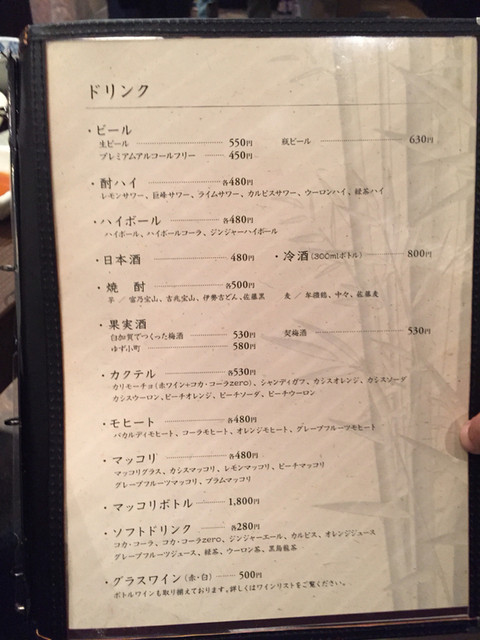 ドリンク
・ビール
生ビール 550円 瓶ビール 630円
プレミアムアルコールフリー 450円
・酎ハイ 各480円
レモンサワー、巨峰サワー、ライムサワー、カルピスサワー、ウーロンハイ、緑茶ハイ
・ハイボール 各480円
ハイボール、ハイボールコーラ、ジンジャーハイボール
・日本酒 480円 ・冷酒(300mlボトル) 800円
・焼 酎 各500円
芋 ／ 富乃宝山、吉兆宝山、伊勢吉どん、佐藤黒 麦 ／ 中々、佐藤麦
・果実酒
白加賀でつくった梅酒 530円 梅酒 530円
ゆず小町 580円
・カクテル 各530円
カリモーチョ(赤ワイン+コカ・コーラzero)、シャンディガフ、カシスオレンジ、カシスソーダ
カシスウーロン、ピーチオレンジ、ピーチソーダ、ピーチウーロン
・モヒート 各480円
バカルディモヒート、コーラモヒート、オレンジモヒート、グレープフルーツモヒート
・マッコリ 各480円
マッコリグラス、カシスマッコリ、レモンマッコリ、ピーチマッコリ
グレープフルーツマッコリ、プラムマッコリ
・マッコリボトル 1,800円
・ソフトドリンク 各280円
コカ・コーラ、コカ・コーラzero、ジンジャーエール、カルピス、オレンジジュース
グレープフルーツジュース、緑茶、ウーロン茶、黒烏龍茶
・グラスワイン(赤・白) 500円
ボトルワインも取り揃えております。詳しくはワインリストをご覧ください。